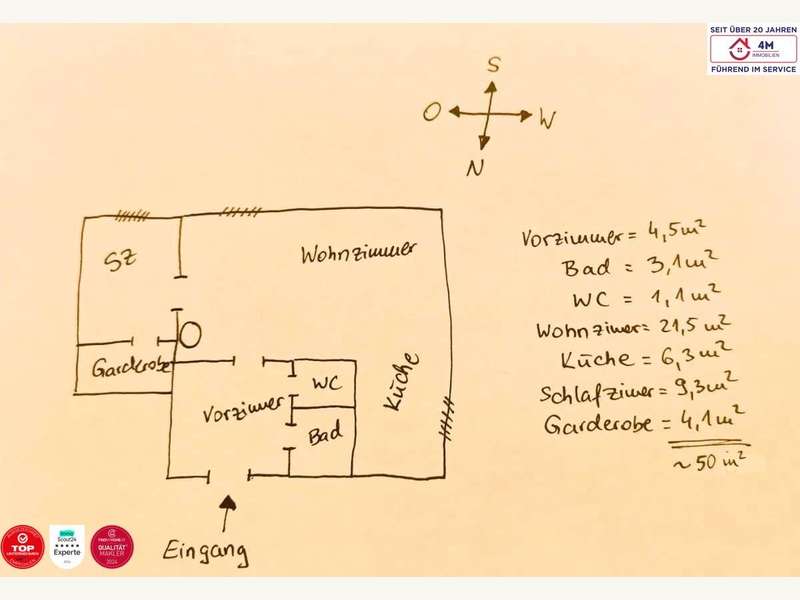 SEIT ÜBER 20 JAHREN
4M
IMMOBILIEN
FÜHREND IM SERVICE
S
O
W
N
SZ
Wohnzimmer
Garderobe
Vorzimmer
WC
Bad
Küche
Eingang
Vorzimmer = 4,5m²
Bad = 3,1m²
WC = 1,1m²
Wohnzimer = 21,5 m²
Küche = 6,3m²
Schlafzimer = 9,3m²
Garderobe = 4,1m²
~50 m²
TOP
Scout24
Experte
QUALITÄT
MAKLER
2024